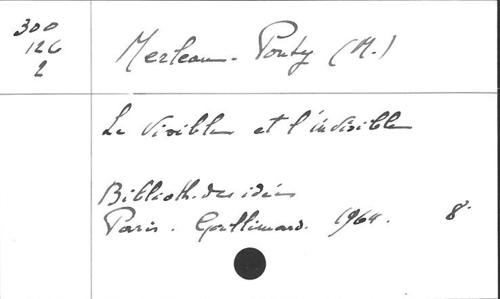 300
126
2
Merleau-Ponty (M.)
Le Visible et l'invisible
Biblioth. des idées
Paris. Gallimard. 1964. 8°